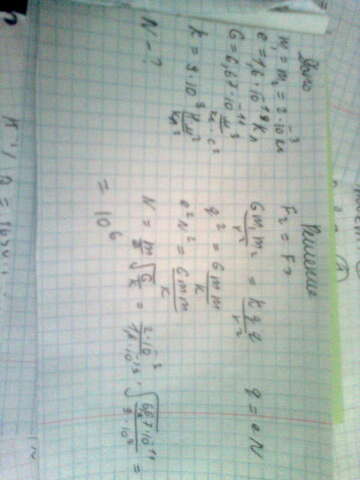 Дано
m₁ = m₂ = 2·10⁻³ кг
e = 1,6·10⁻¹⁹ Кл
G = 6,67·10⁻¹¹ м³/кг·с²
k = 9·10⁹ Н·м²/Кл²
N - ?
Решение
Fг = Fэ
G m₁m₂/r² = k q q/r² q = eN
q² = G m m/k
e²N² = G m m/k
N = m/e √G/k = 2·10⁻³/1,6·10⁻¹⁹ · √6,67·10⁻¹¹/9·10⁹ =
= 10⁶